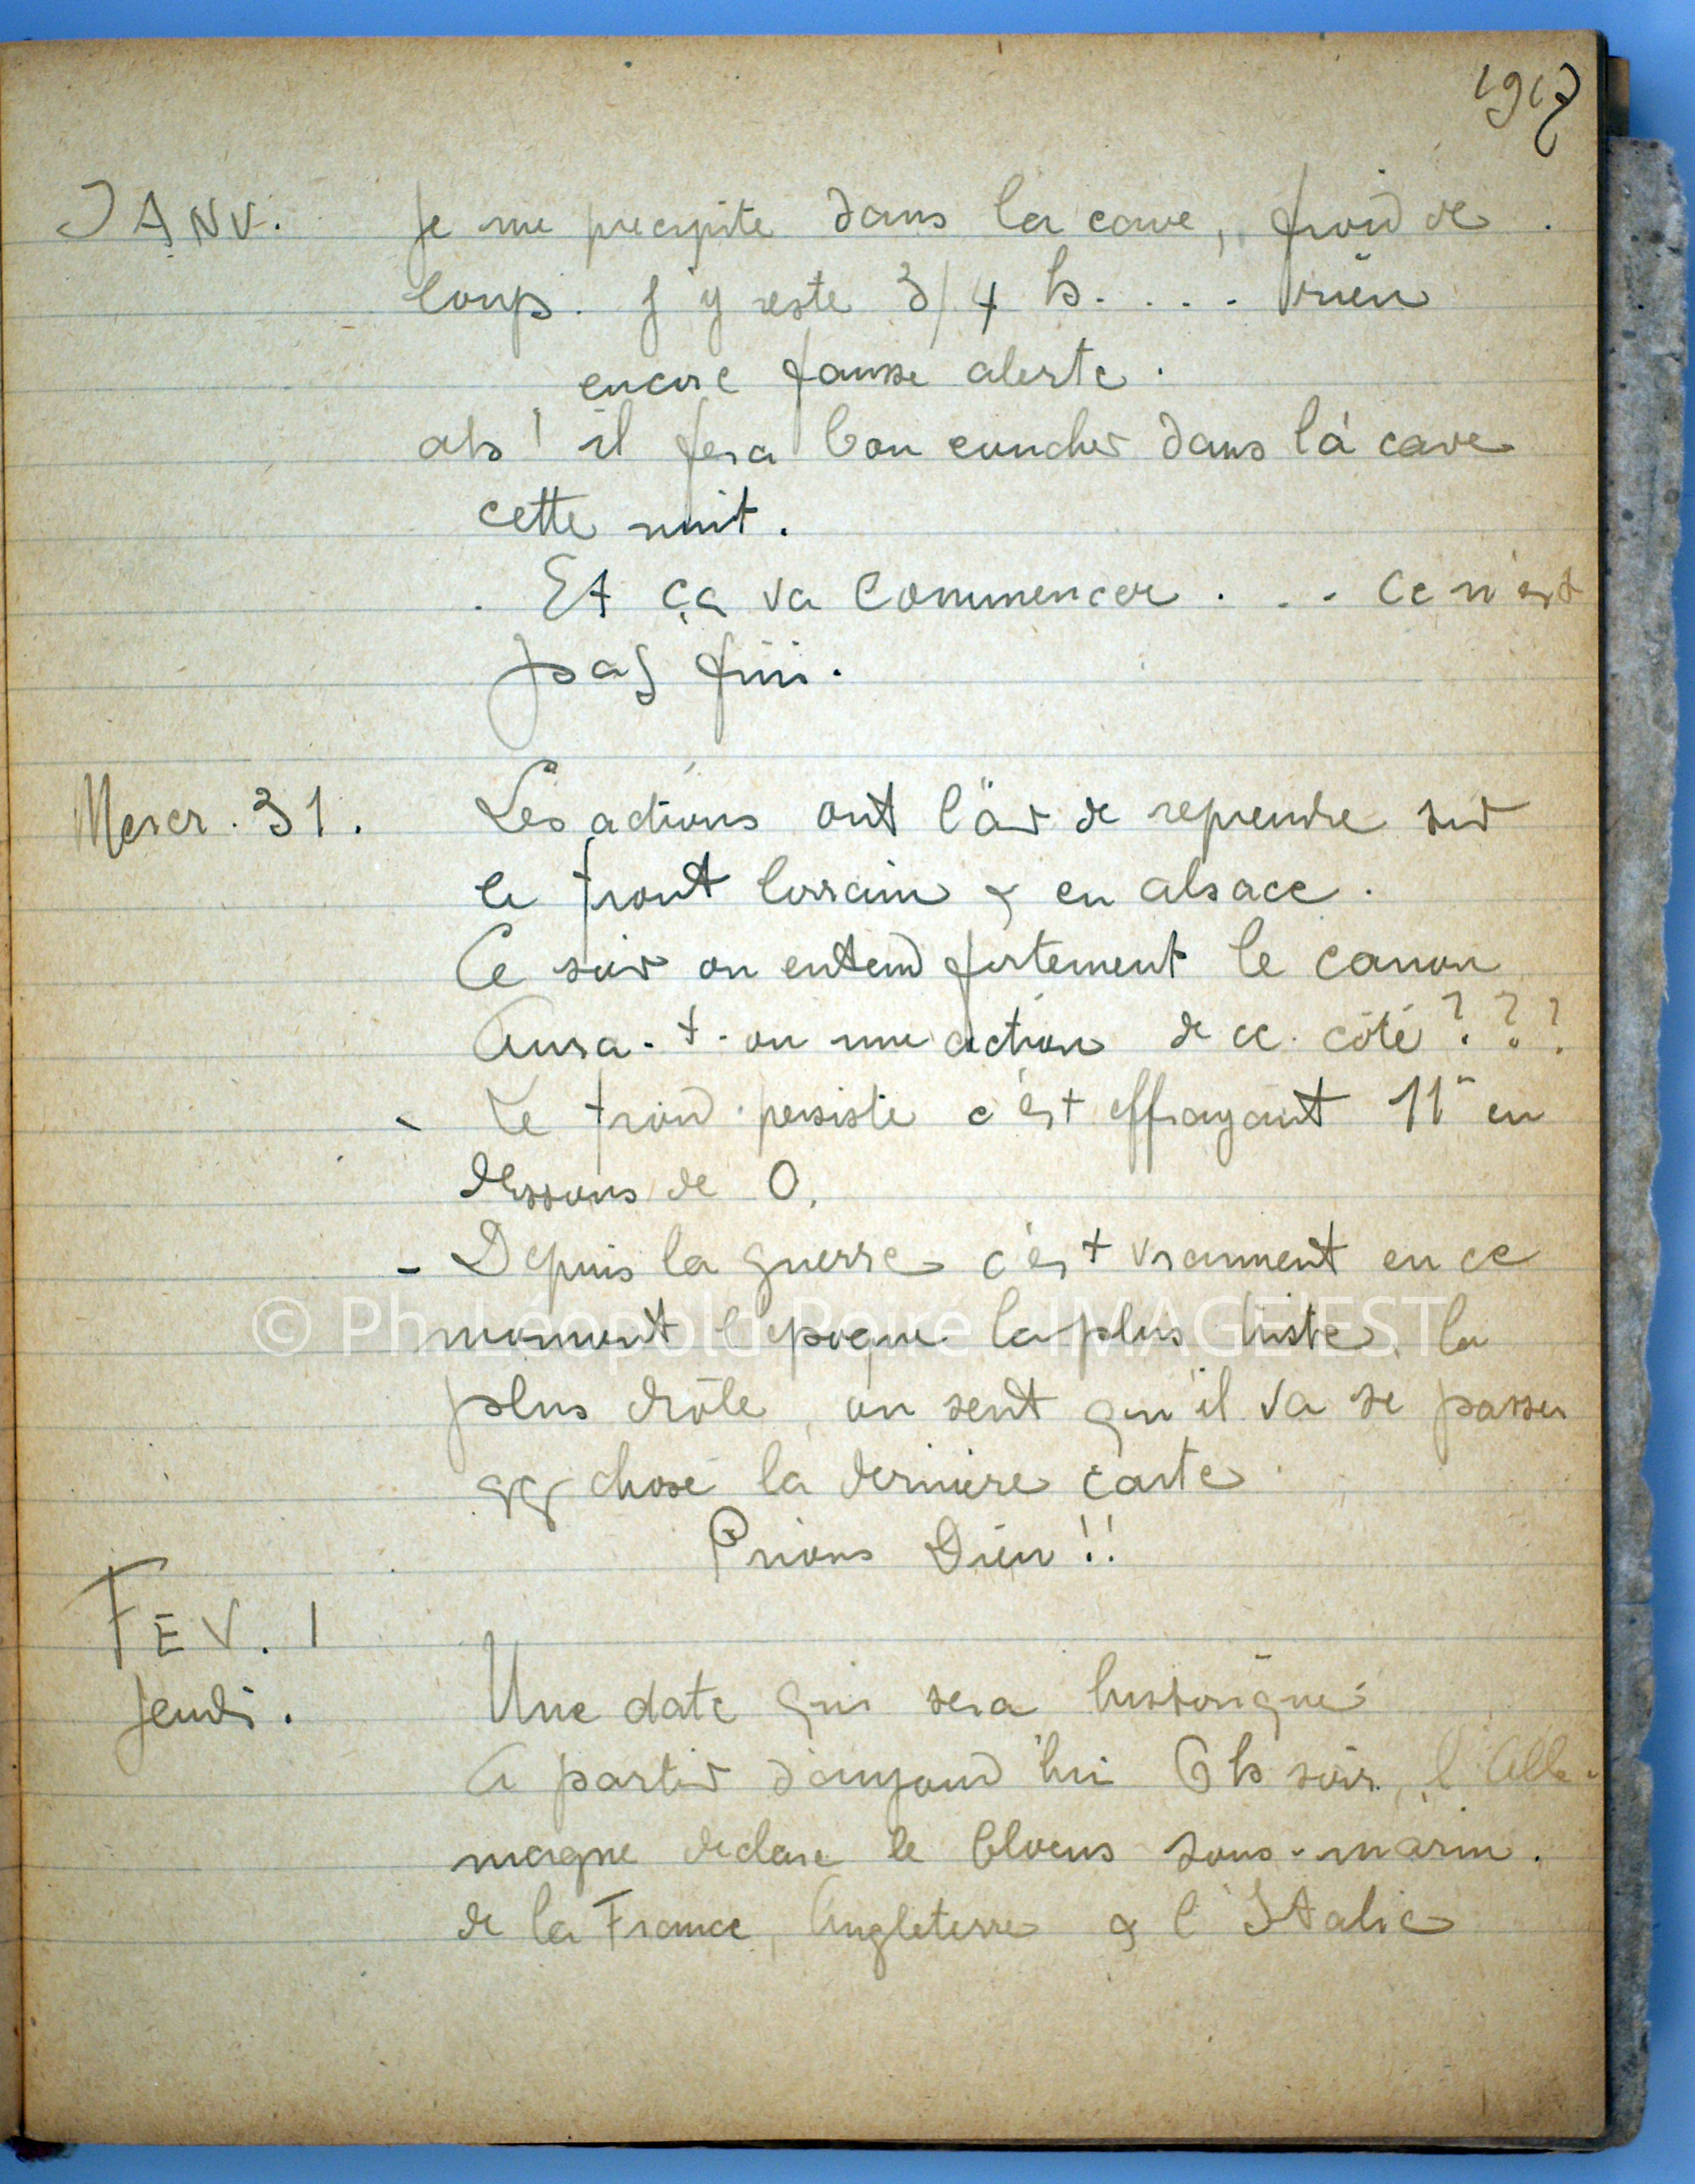 1917
JANV. Je me precipite dans la cave, froid de
loup. J'y reste 3/4 h. . . . rien
encore fausse alerte.
ah ! il fera bon coucher dans la cave
cette nuit.
. Et ça va commencer . . . Ce n'est
pas fini.
Mercr. 31. Les actions ont l'air de reprendre sur
le front lorrain & en alsace.
Ce soir on entend fortement le canon
Aura-t-on une action de ce côté ? ? ?
- Le froid persiste c'est effrayant 11° en
dessous de 0.
- Depuis la guerre c'est vraiment en ce
moment l'epoque la plus triste, la
plus drôle, on sent qu'il va se passer
qq chose la derniere carte.
Prions Dieu !!
FEV. 1
Jeudi. Une date qui sera historique
A partir d'aujourd'hui 6 h soir, l'Alle-
magne declare le blocus sous-marin.
de la France, Angleterre & l'Italie
© Ph. Léopold Poiré IMAGE'EST